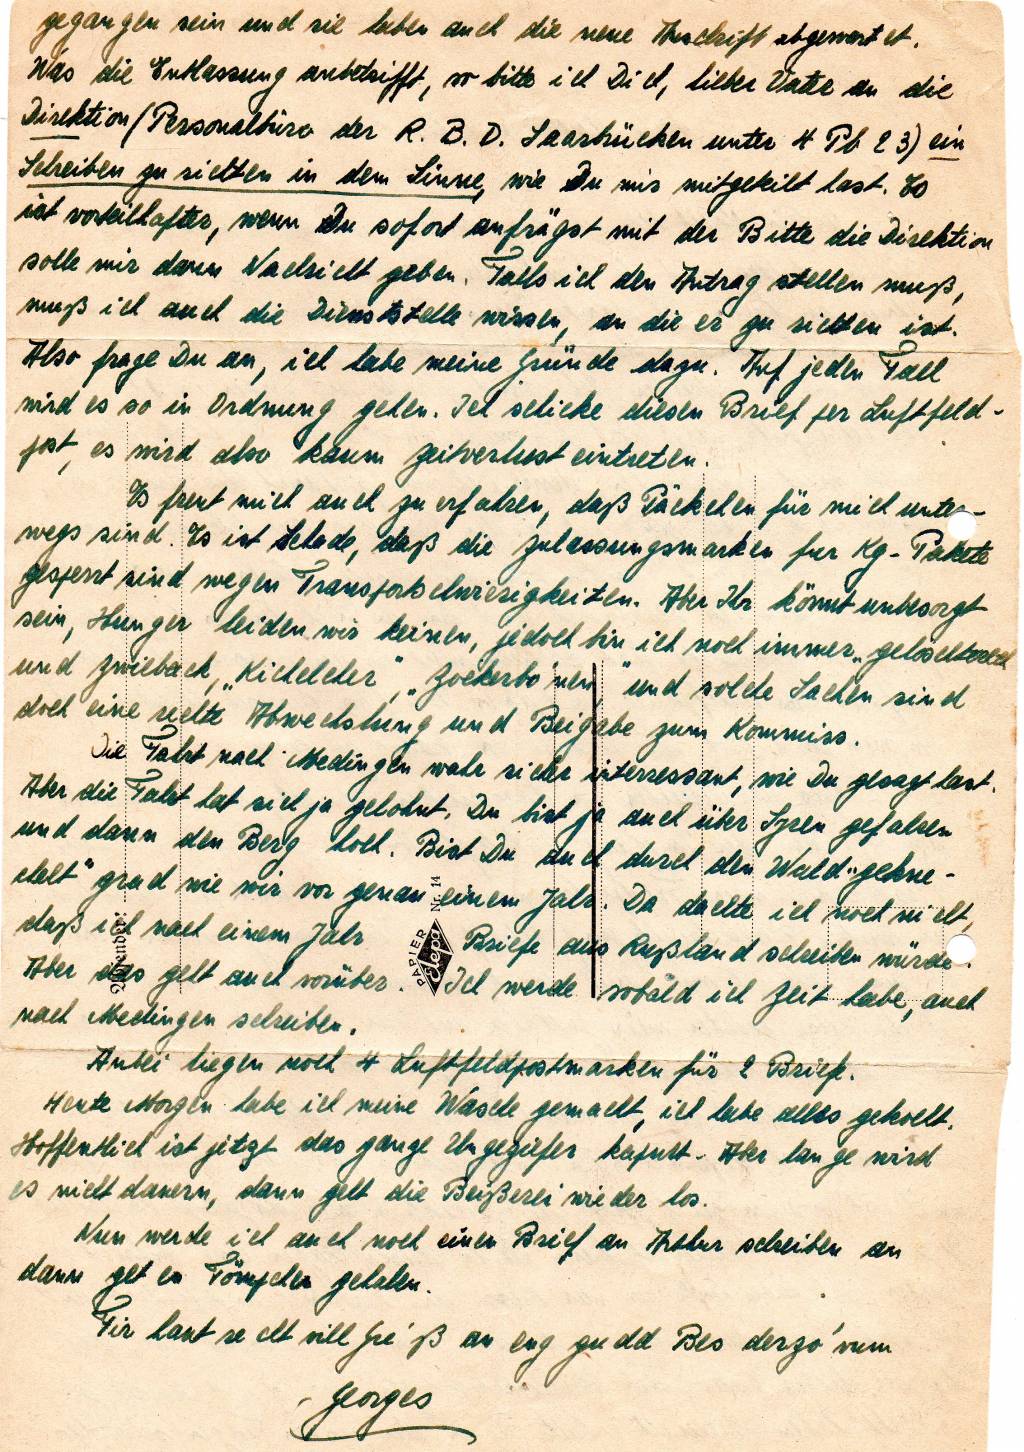 gegangen sein und sie haben auch die neue Anschrift abgewartet.
Was die Entlassung anbetrifft, so bitte ich Dich, lieber Vater an die
Direktion (Personalbüro der R. B. D. Saarbrücken unter 4 Pb 23) ein
Schreiben zu richten in dem Sinne, wie Du mir mitgeteilt hast. Es
ist vorteilhafter, wenn Du sofort anfrägst mit der Bitte die Direktion
solle mir dann Nachricht geben. Falls ich den Antrag stellen muß,
muß ich auch die Dienststelle wissen, an die er zu richten ist.
Also frage Du an, ich habe meine Gründe dazu. Auf jeden Fall
wird es so in Ordnung gehen. Ich schicke diesen Brief per Luftfeld-
post, es wird also kaum Zeitverlust eintreten.
Es freut mich auch zu erfahren, daß Päckchen für mich unter-
wegs sind. Es ist Schade, daß die Zulassungsmarken fur Kg-Pakete
gesperrt sind wegen Transportschwierigkeiten. Aber Ihr könnt unbesorgt
sein, Hunger leiden wir keinen, jedoch bin ich noch immer
und Zwieback, „Kichelcher", „Zockerbo'nen" und solche Sachen sind
doch eine rechte Abwechslung und Beigabe zum Kommiss.
Die Fahrt nach Medingen wahr sicher interressant, wie Du gesagt hast.
Aber die Fahrt hat sich ja gelohnt. Du bist ja auch über Syren gefahren
und dann den Berg hoch. Bist Du auch durch den Wald „gekne-
chelt" grad wie wir vor genau einem Jahr. Da dachte ich noch nicht,
daß ich nach einem Jahr Briefe aus Rußland schreiben würde.
Aber das geht auch vorüber. Ich werde sobald ich Zeit habe, auch
nach Medingen schreiben.
Absender:
PAPIER Elepa Nr. 14
Anbei liegen noch 4 Luftfeldpostmarken für 2 Briefe.
Heute Morgen habe ich meine Wäsche gemacht, ich habe alles gekocht.
Hoffentlich ist jetzt das ganze Ungeziefer kaputt. Aber lange wird
es nicht dauern, dann geht die Beißerei wieder los.
Nun werde ich auch noch einen Brief an Arthur schreiben an
dann get en Tömpchen gehalen.
Fir haut recht vill Gre'ß an eng gudd Bes derzo' vum
Georges